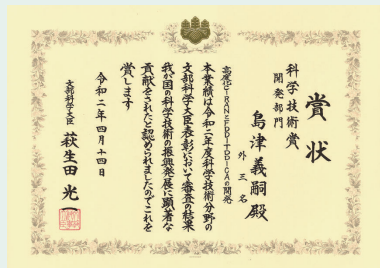 賞状
科学技術賞
開発部門
島津義嗣殿
外三名
高感度CTRANとFDUTTDDICAの開発
本業績は令和二年度科学技術分野の
文部科学大臣表彰において審査の結果
我が国の科学技術の振興発展に顕著な
貢献をされたと認められましたのでこれを
賞します
令和二年四月十四日
文部科学大臣
萩生田光一